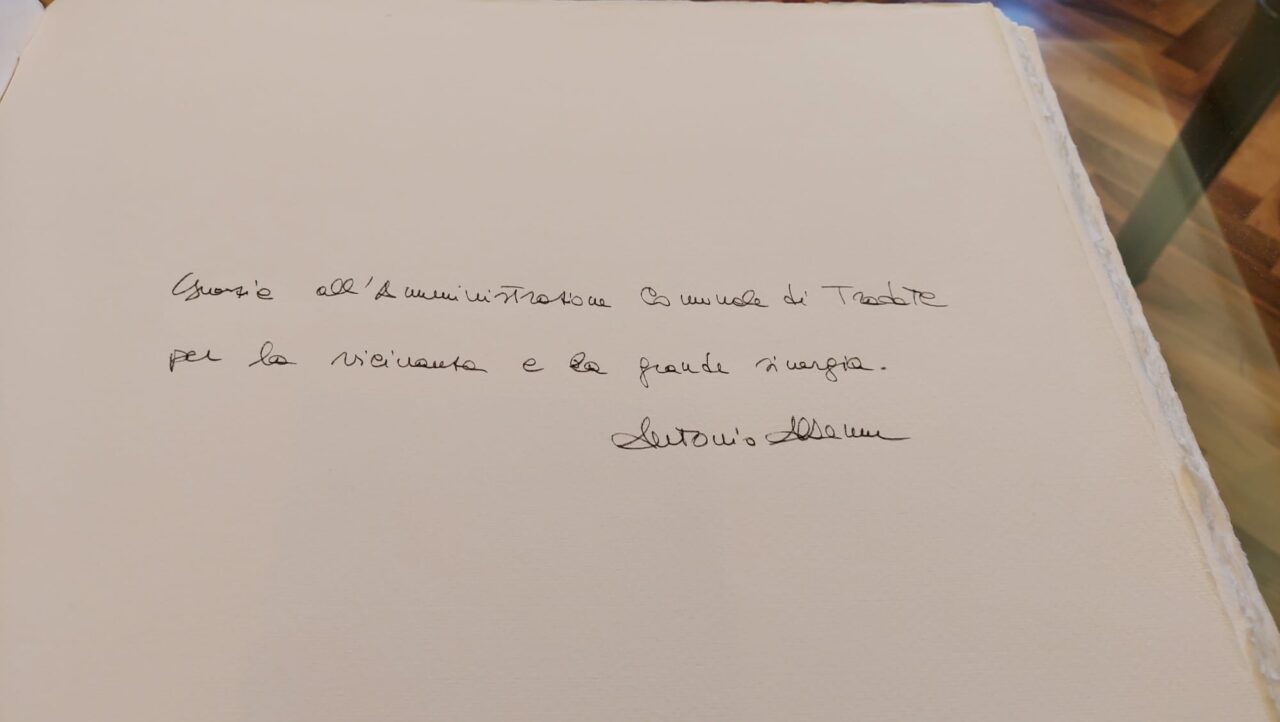 Grazie all'Amministrazione Comunale di Tradate
per la vicinanza e la grande sinergia.
Antonio